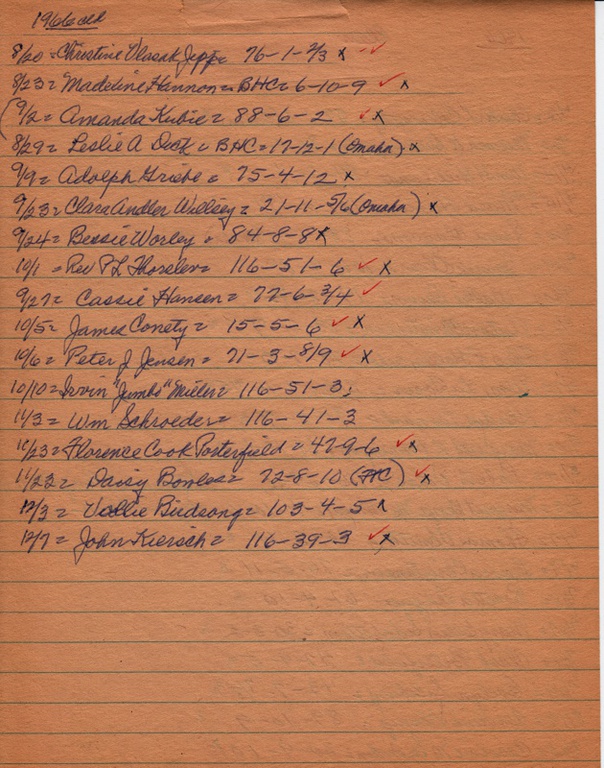 1966
8/20 = Christine Vlasak Jepp= 76-1-2/3 x -✓
8/23= Madeline Hannon= BHC= 6-10-9 ✓ x
(9/2= Amanda Kubie= 88-6-2 ✓x
8/29= Leslie A Dick= BHC=17-12-1 (Omaha) x
9/9= Adolph Griebe = 75-4-12 x
9/23= Clara Andler Willsey= 21-11-5/6 (Omaha) x
9/24= Bessie Worley = 84-8-8 x
10/1 = Rev P L Thorslev= 116-51-6 ✓ x
9/27= Cassie Hansen= 77-6-3/4 ✓
10/5= James Conety= 15-5-6 ✓ x
10/6= Peter J Jensen= 71-3-8/9 ✓ x
10/10= Irvin "Jumbo" Miller= 116-51-3
11/3= Wm Schroeder= 116-41-3
11/23= Florence Cook Porterfield = 47-9-6 ✓ x
11/22= Daisy Bowles= 72-8-10 ✓ x
12/3= Vallie Birdsong= 103-4-5 x
12/7= John Kiersch= 116-39-3 ✓ x